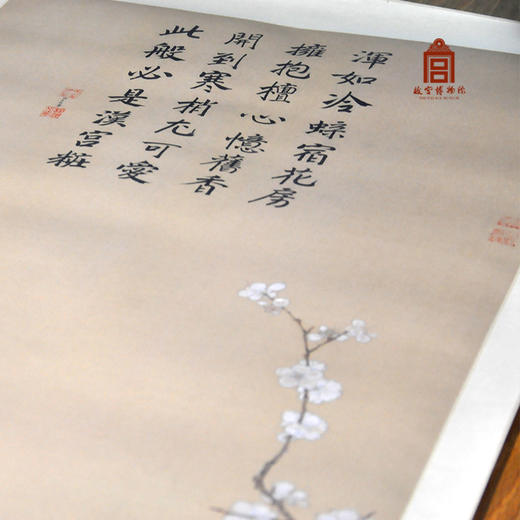 渾如冷蝶宿花房
擁抱檀心憶舊香
開到寒梢尤可愛
此般必是漢宮粧
故宫博物院
THE PALACE MUSEUM